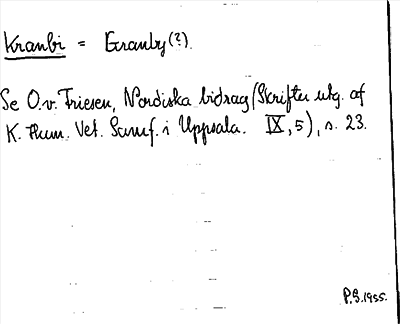 Kranbi = Granby (?).
Se O. v. Friesen, Nordiska bidrag (Skrifter utg. af
K. Hum. Vet. Samf. i Uppsala. IX, 5), s. 23.
P.S. 1955.